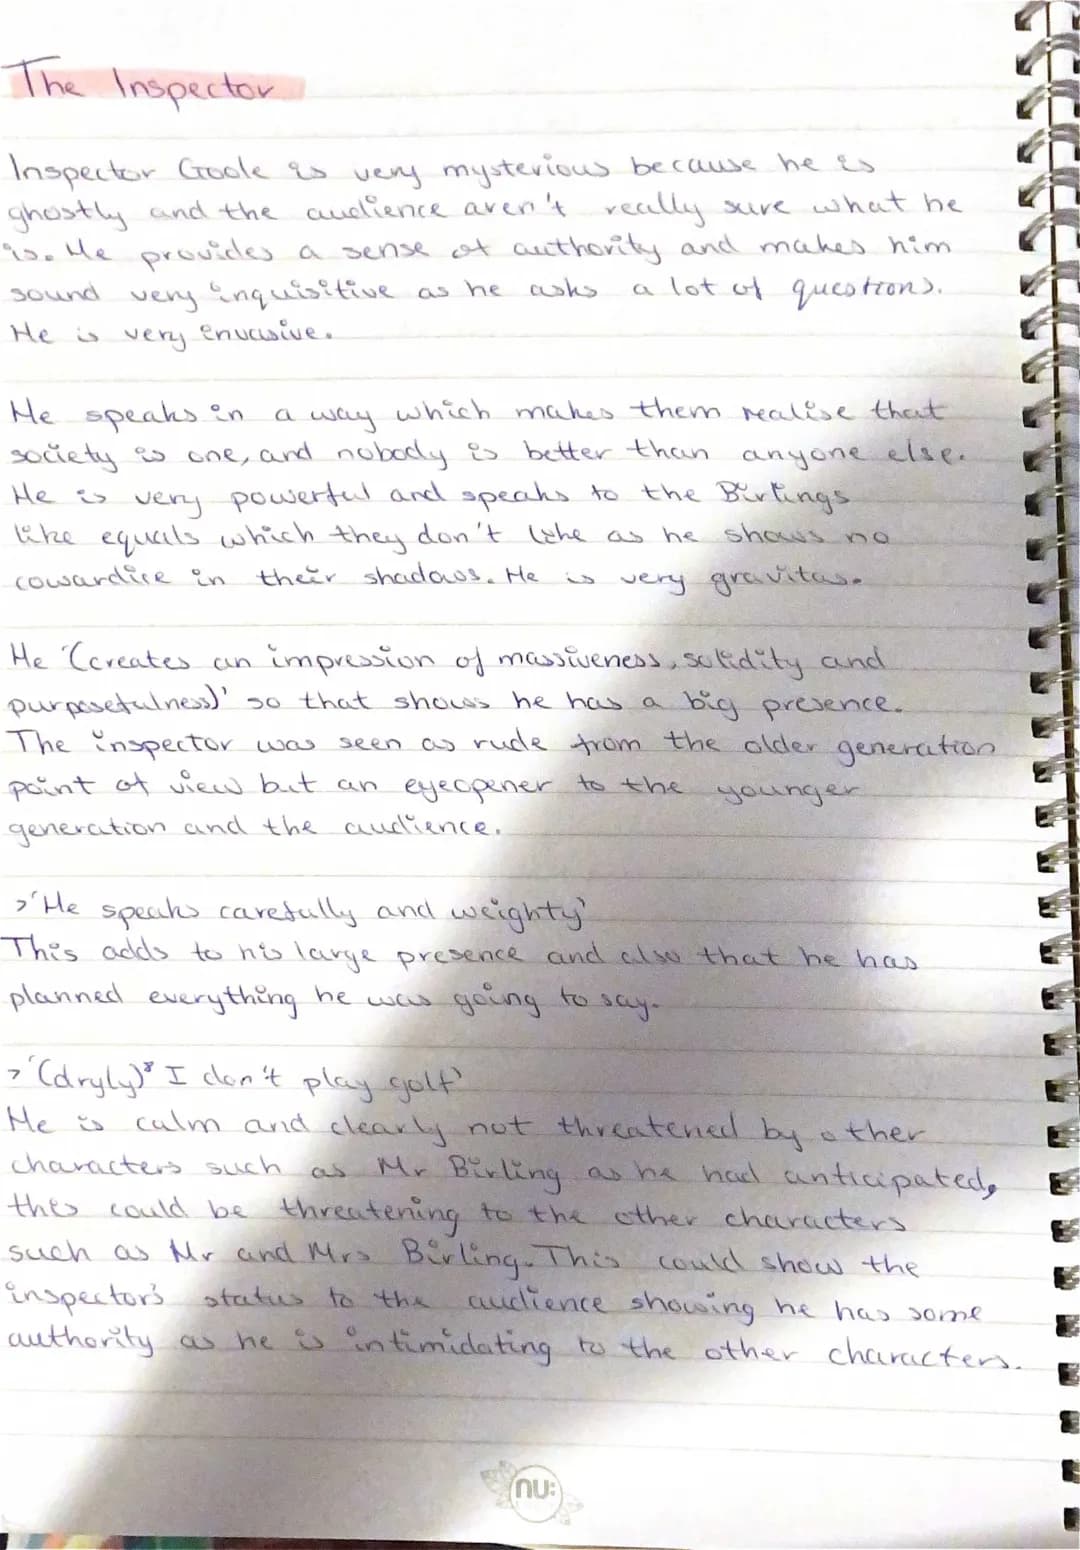 The Inspector
Inspector Goole is very mysterious because he is
ghostly and the audience aren't really sure what he
is. He provides a sense of authority and makes him
sound very inquisitive as he asks a lot of questions.
He is very envasive.
He speaks in a way which makes them realise that
society is one, and nobody is better than anyone else.
He is very powerful and speaks to the Birlings
like equals which they don't like as he shows no
cowardice in their shadows. He is very gravitas.
He '(creates an impression of massiveness, solidity and
purposefulness)' so that shows he has a big presence.
The inspector was seen as rude from the older generation
point of view but an eyeopener to the younger
generation and the audience.
>'He speaks carefully and weighty'
This adds to his large presence and also that he has
planned everything he was going to say.
>'(dryly)" I don't play golf'
He is calm and clearly not threatened by other
characters such as Mr Birling as he had anticipated,
this could be threatening to the other characters
such as Mr and Mrs Birling. This could show the
inspector's status to the audience showing he has some
authority as he is intimidating to the other characters.
nu: